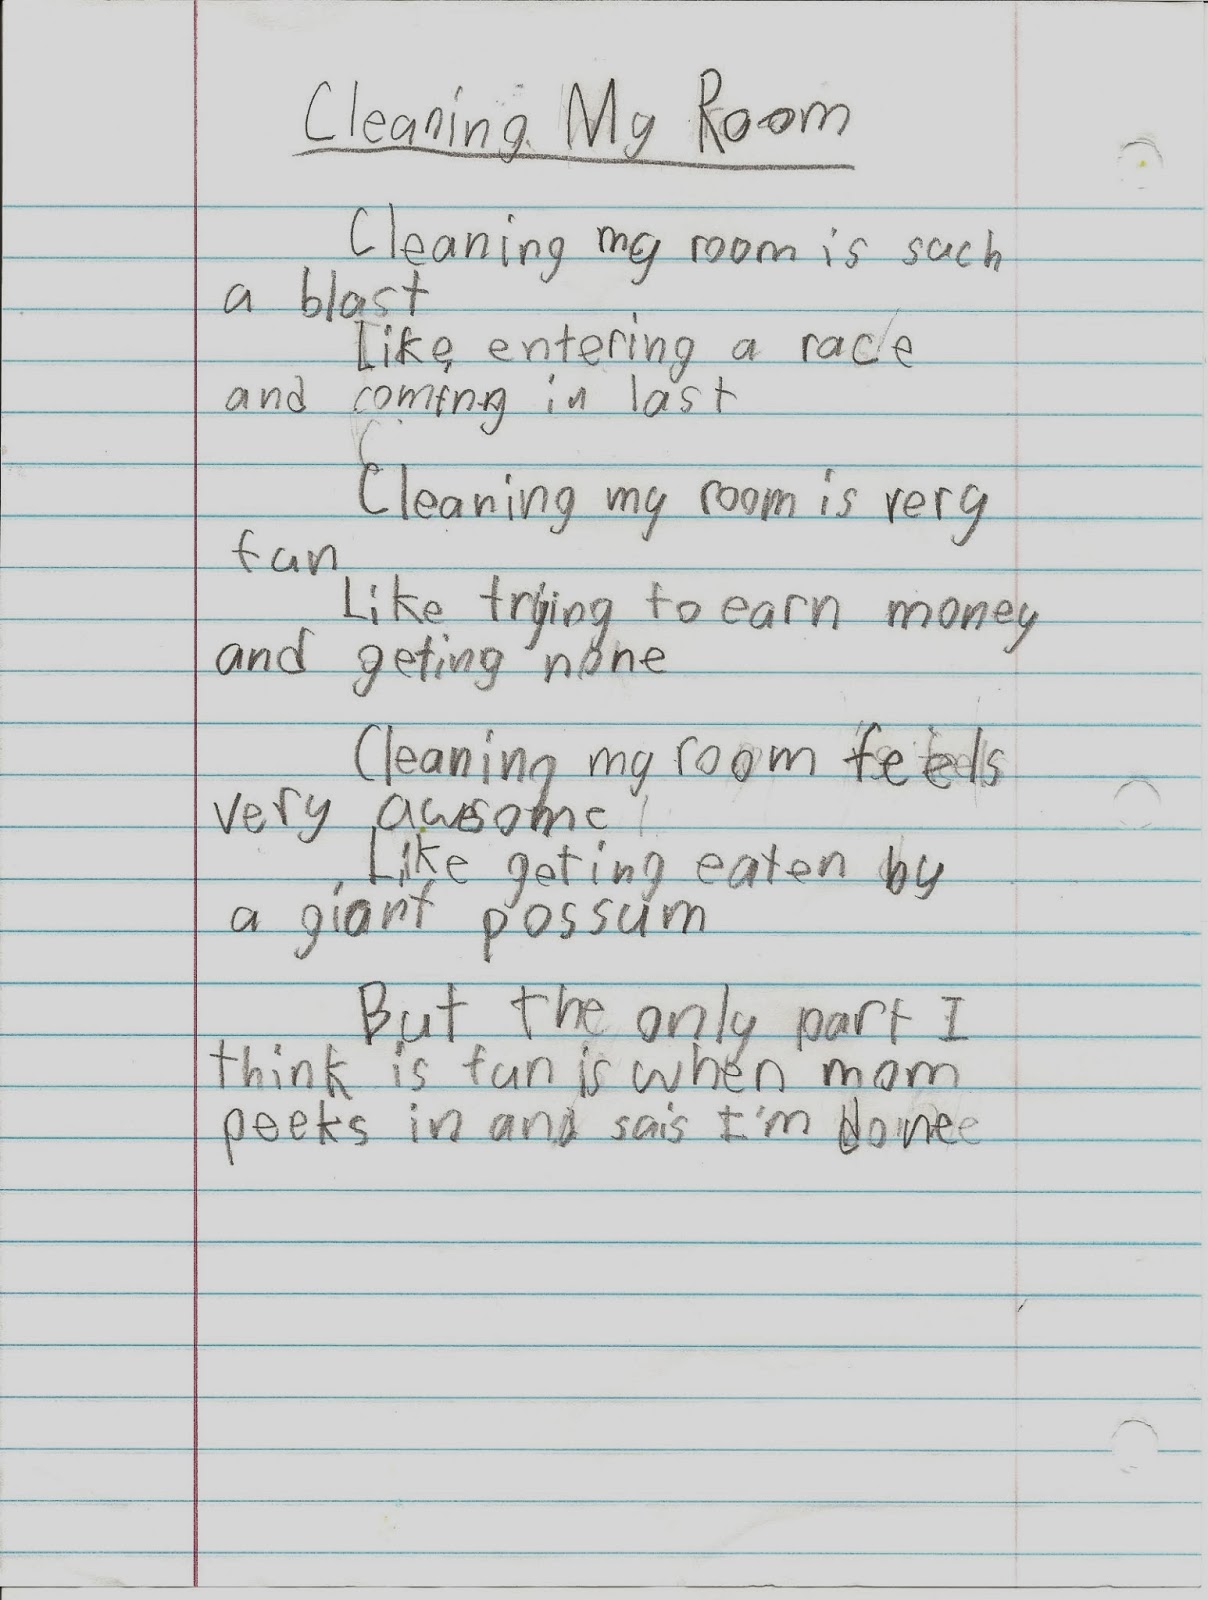 Cleaning My Room
Cleaning my room is such
a blast
Like entering a race
and coming in last
Cleaning my room is very
fun
Like trying to earn money
and geting none
Cleaning my room feels
very awsome
Like geting eaten by
a giant possum
But the only part I
think is fun is when mom
peeks in and sais I'm done